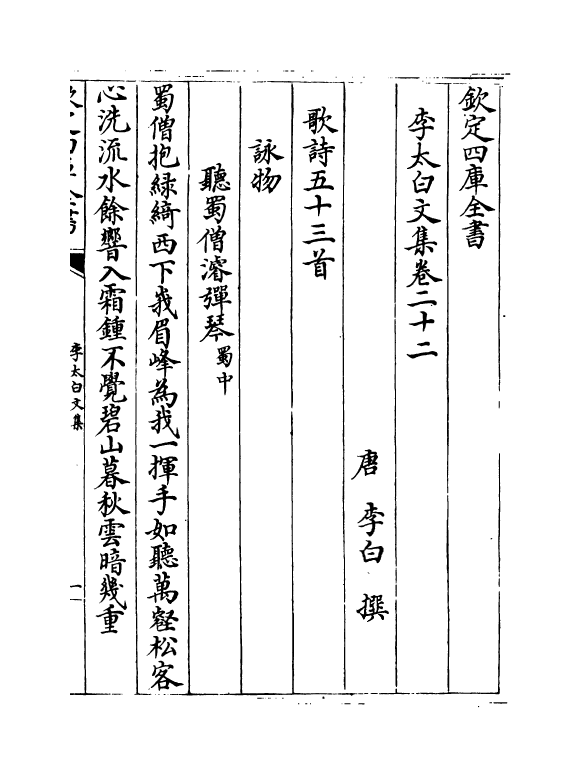 欽定四庫全書
李太白文集卷二十二
唐 李白 撰
歌詩五十三首
詠物
聽蜀僧濬彈琴蜀中
蜀僧抱緑綺西下峩眉峰為我一揮手如聽萬壑松客
心洗流水餘響入霜鍾不覺碧山暮秋雲暗幾重
李太白文集
一